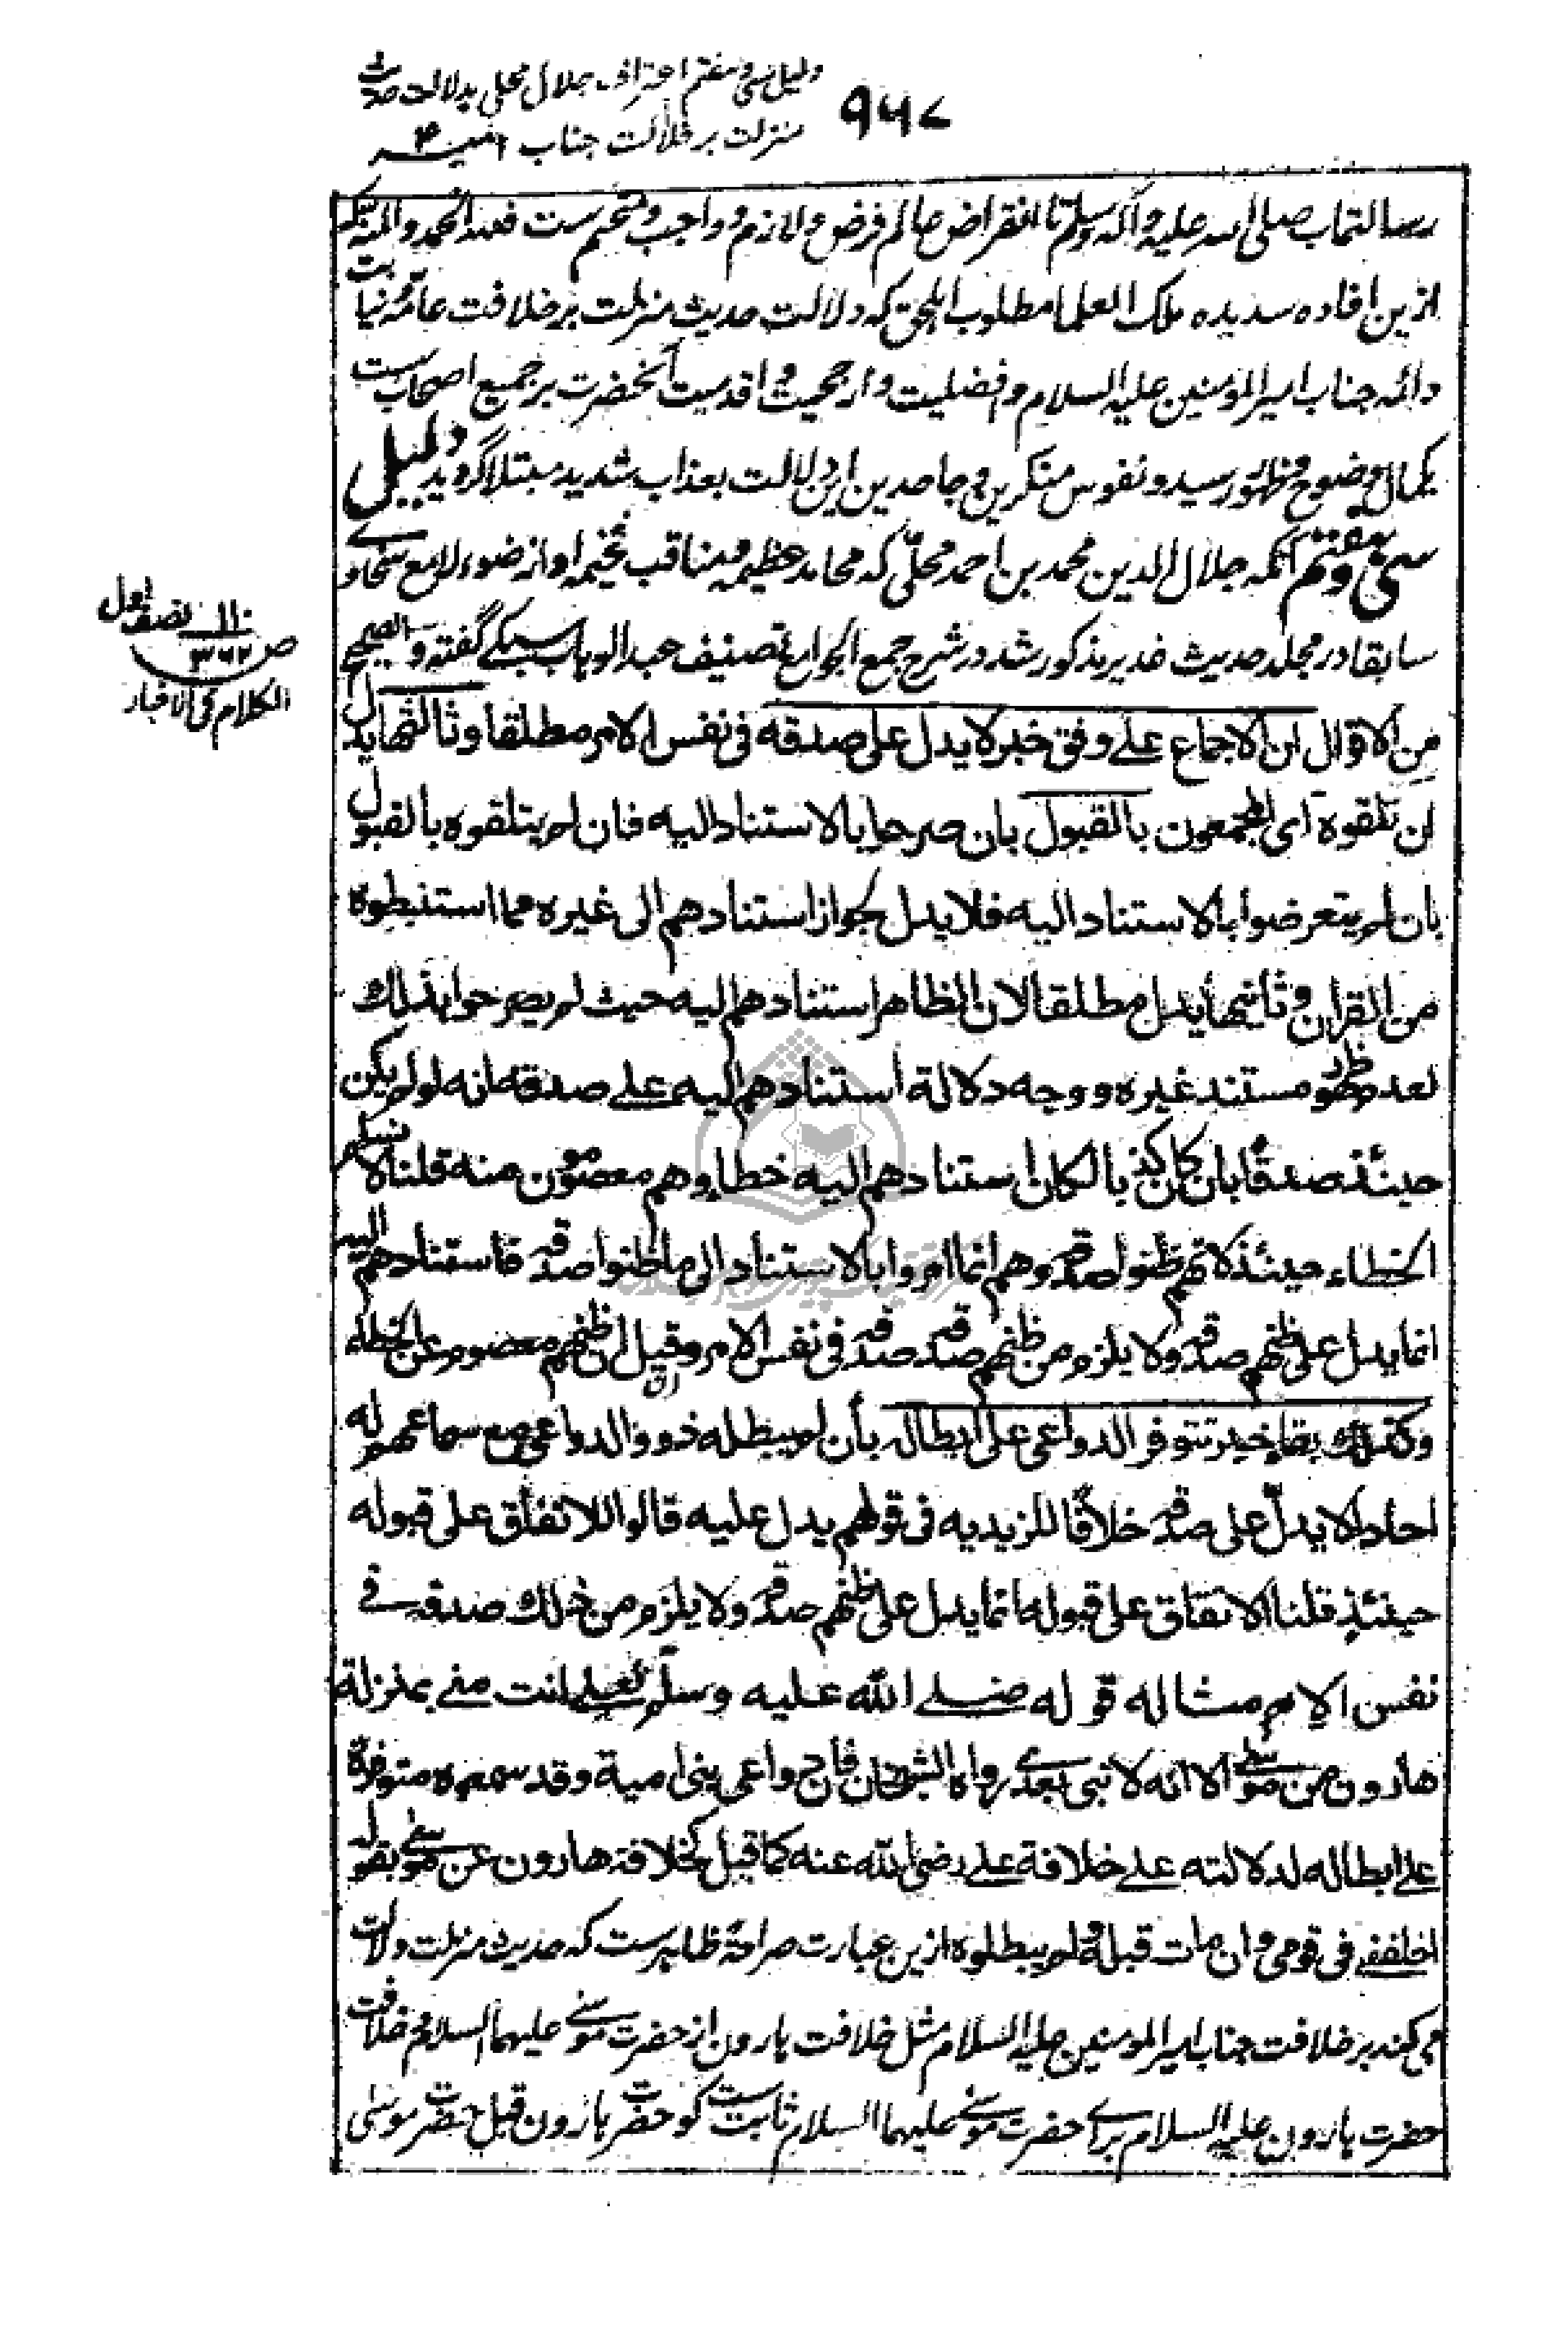 دلیل سی و هفتم اعتراف جلال محلی بدلالت حدیث
منزلت بر خلافت جناب امیر ع
۹۶۷
رسالتماب صلی الله علیه و آله وسلم تا انقراض عالم فرض و لازم و واجب و متحتم ست فلله الحمد والمنة که
ازین افاده سدیده ملک العلما مطلوب اهل حق که دلالت حدیث منزلت بر خلافت عامه نیابت
دائمه جناب امیرالمؤمنین علیه السلام و افضلیت و ارجحیت و اقدمیت آنحضرت بر جمیع اصحاب ست
بکمال وضوح و ظهور رسید و نفوس منکرین و جاحدین این دلالت بعذاب شدید مبتلا گردید دلیل
سی و هفتم آنکه جلال الدین محمد بن احمد محلّی که محامد عظیمه و مناقب فخیمه او از ضوء لامع سخاوے
سابقا در مجلد حدیث غدیر مذکور شد در شرح جمع الجوامع تصنیف عبدالوهاب سبکے گفته والصحیح
من الاقوال ان الاجماع علے وفق خبر لا یدل علی صدقه فی نفس الامر مطلقا وثالثها یدل
ان تلقوه ای المجمعون بالقبول بان صرحوا بالاستناد الیه فان لم یتلقوه بالقبول
بان لم یتعرضوا بالاستناد الیه فلا یدل لجواز استنادهم الی غیره مما استنبطوه
من القران وثانیها یدل مطلقا لان الظاهر استنادهم الیه حیث لم یصرحوا بذلك
لعدم ظهور مستند غیره ووجه دلالة استنادهم الیه علے صدقه انه لو لم یکن
حینئذ صدقا بان کان کذبا لکان استنادهم الیه خطاء وهم معصومون منه قلنا لا نسلم
الخطاء حینئذ لانهم ظنوا صدقه وهم انما امروا بالاستناد الی ما ظنوا صدقه فاستنادهم الیه
انما یدل علی ظنهم صدقه ولا یلزم من ظنهم صدقه صدقه فی نفس الامر وقیل ان ظنهم معصوم عن الخطاء
وکذلك بقاء خبر تتوفر الدواعی علی ابطاله بأن لم یبطله ذوو الدواعی مع سماعهم له
احادا لا یدلّ علی صدقه خلافًا للزیدیه فی قولهم یدل علیه قالوا للاتفاق علی قبوله
حینئذٍ قلنا الاتفاق علی قبوله انما یدل علی ظنهم صدقه ولا یلزم من ذلك صدقه فے
نفس الامر مثاله قوله صلے الله علیه وسلّم لعلی انت منے بمنزلة
هارون من موسے الا انه لا نبی بعدے رواه الشیخان فان دواعی بنی امیة وقد سمعوه متوفرة
علے ابطاله لدلالته علے خلافة علے رضی الله عنه کما قیل کخلافة هارون عن موسے بقوله
اخلفنے فی قومی وان مات قبله ولم یبطلوه ازین عبارت صراحةً ظاهرست که حدیث منزلت دلالت
می کند بر خلافت جناب امیرالمومنین علیه السلام مثل خلافت هارون از حضرت موسے علیهما السلام و خلافت
حضرت هارون علیه السلام براے حضرت موسے علیهما السلام ثابت ست گو حضرت هارون قبل حضرت موسی
۱۱۰ نصف اول
ص ۳۶۲
الکلام فی الاخبار